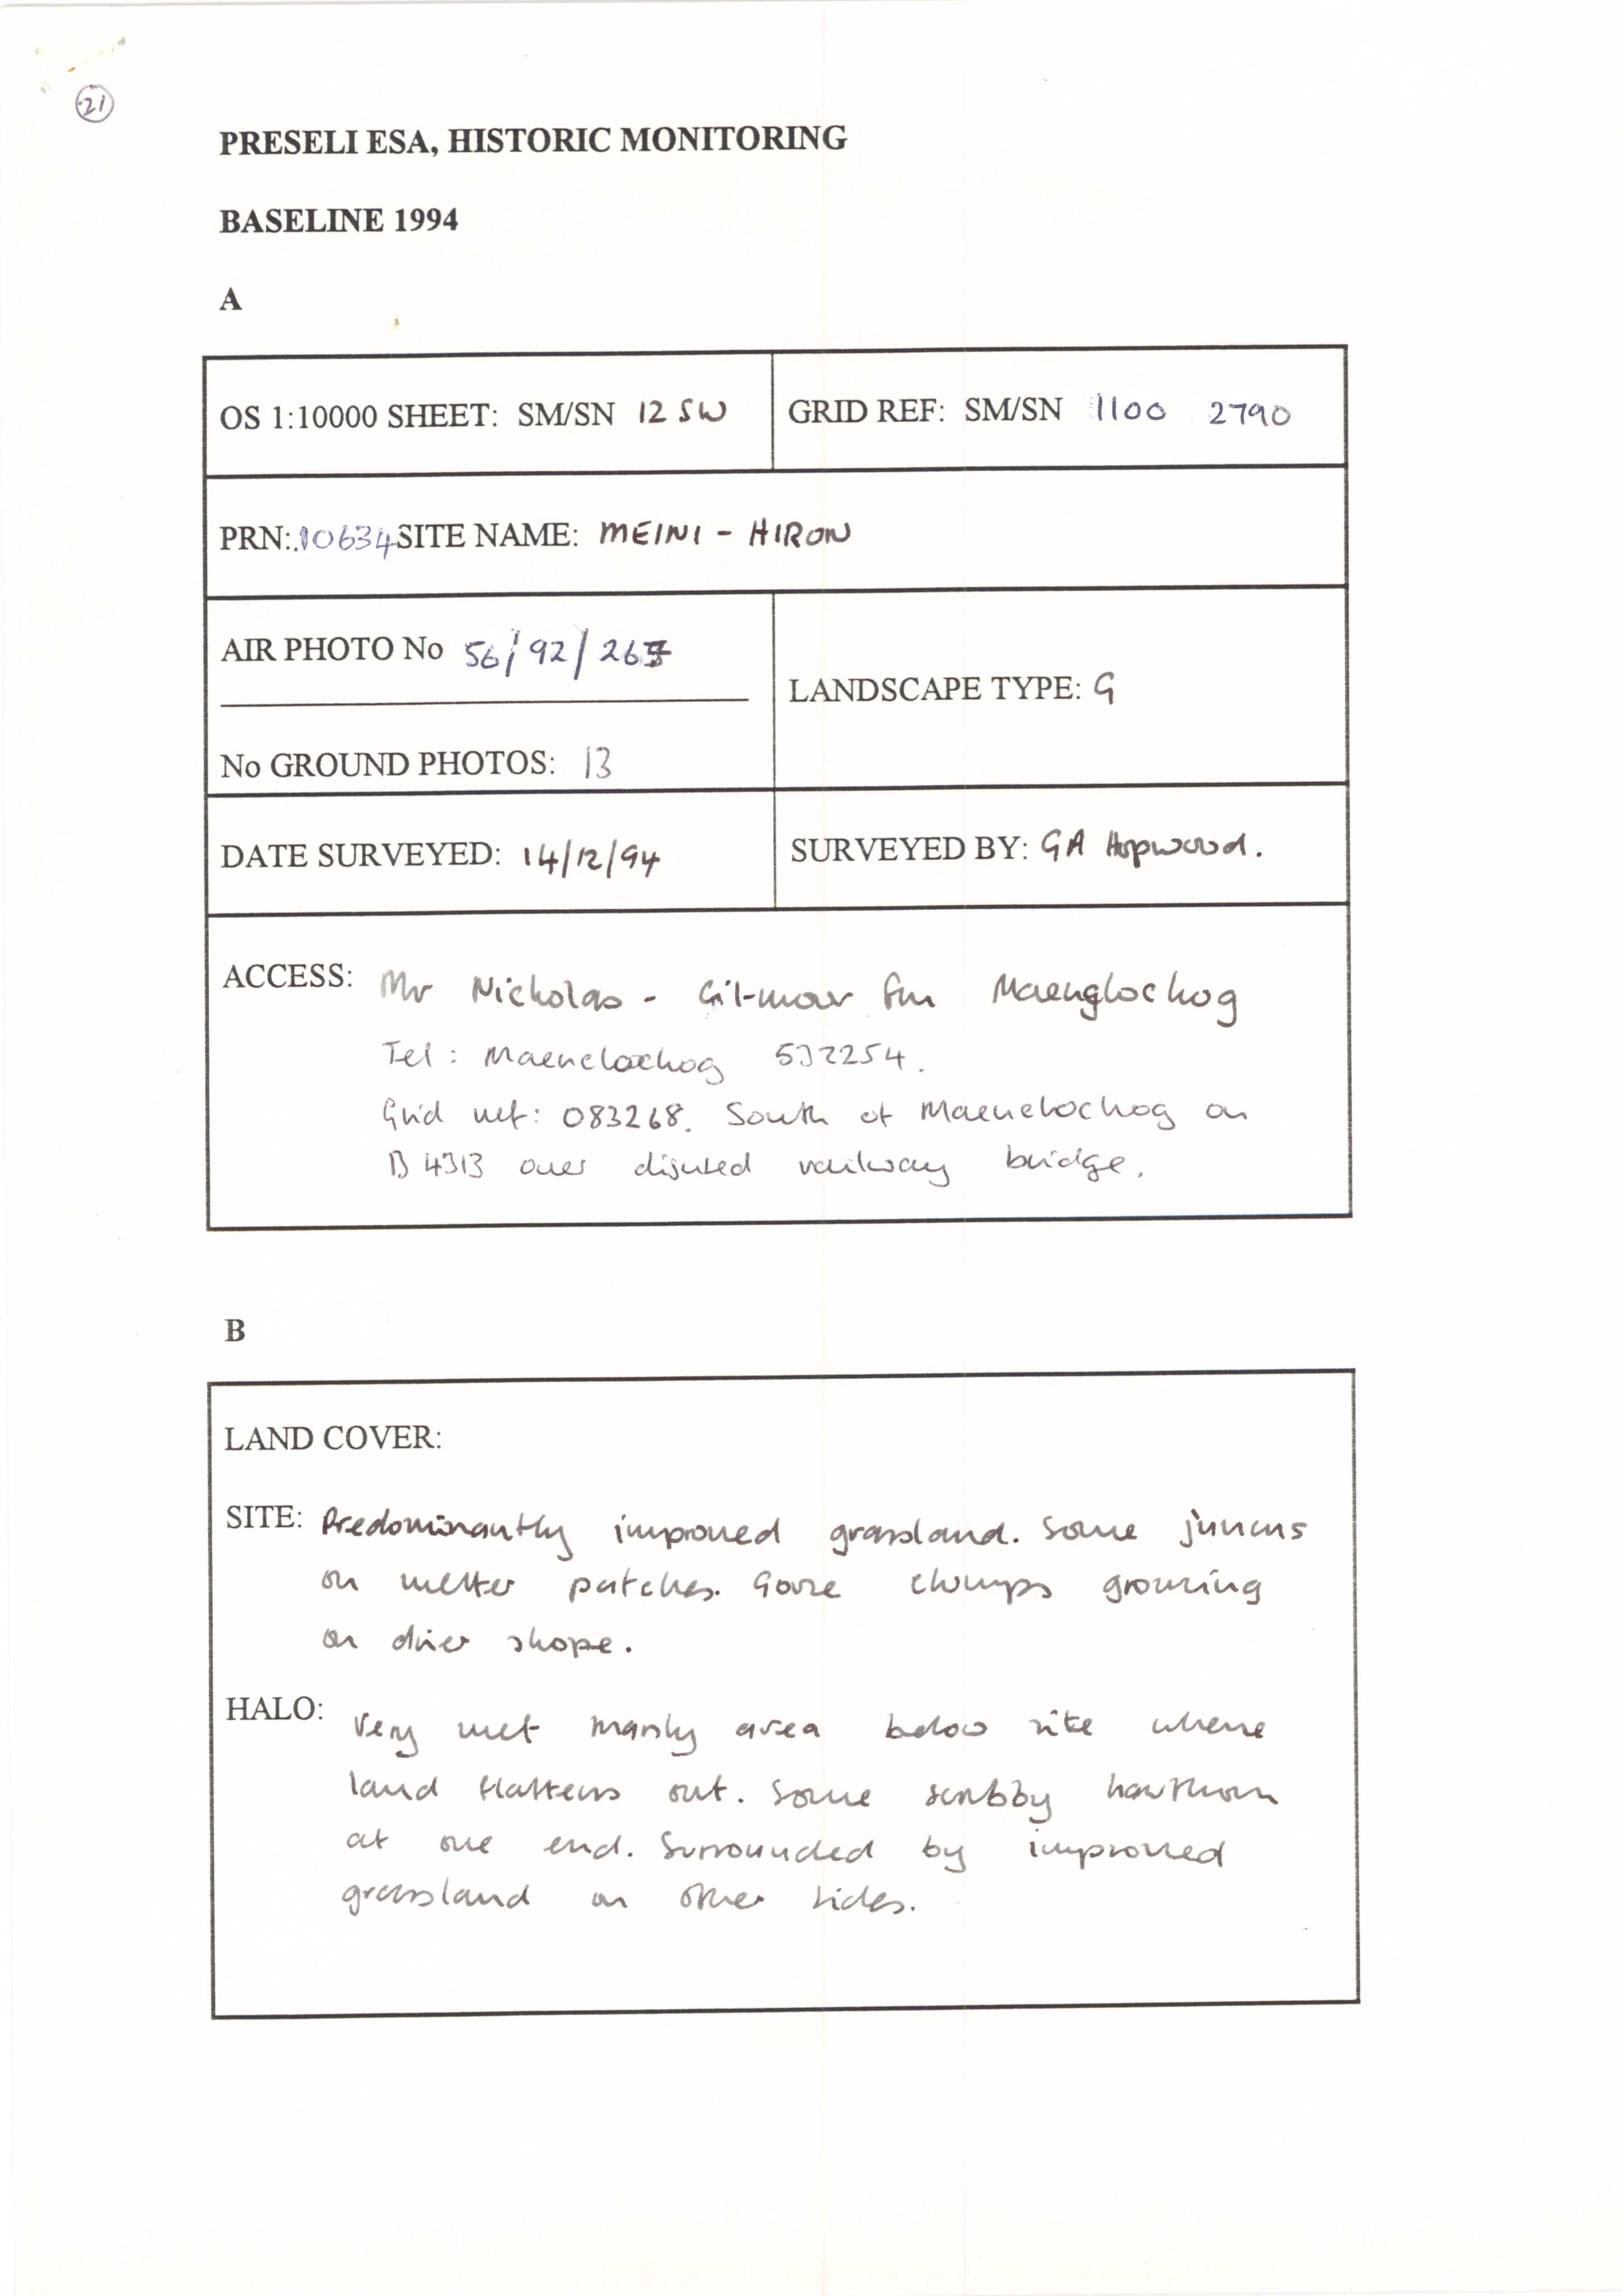 21
PRESELI ESA, HISTORIC MONITORING
BASELINE 1994
A
OS 1:10000 SHEET: SM/SN 12 SW
GRID REF: SM/SN 1100 2790
PRN: 10634 SITE NAME: MEINI - HIRON
AIR PHOTO No 56/92/267
LANDSCAPE TYPE: G
No GROUND PHOTOS: 13
DATE SURVEYED: 14/12/94
SURVEYED BY: GA Hopwood.
ACCESS: Mr Nicholas - Gilmour Fm Maenglochog
Tel: Maenclochog 532254.
Grid ref: 083268. South of Maenclochog on
B4313 over disused railway bridge.
B
LAND COVER:
SITE: Predominantly improved grassland. Some juncus
on wetter patches. Gorse clumps growing
on drier slope.
HALO: Very wet marshy area below site where
land flattens out. Some scrubby hawthorn
at one end. Surrounded by improved
grassland on other sides.